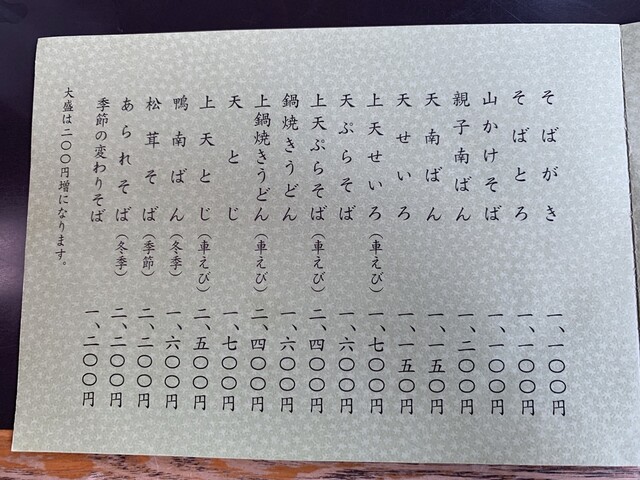 そばがき 一、一〇〇円
そばとろ 一、一〇〇円
山かけそば 一、一〇〇円
親子南ばん 一、二〇〇円
天南ばん 一、一五〇円
天せいろ 一、一五〇円
上天せいろ(車えび) 一、七〇〇円
天ぷらそば 一、六〇〇円
上天ぷらそば(車えび) 二、四〇〇円
鍋焼きうどん 一、六〇〇円
上鍋焼きうどん(車えび) 二、四〇〇円
天とじ 一、七〇〇円
上天とじ(車えび) 二、五〇〇円
鴨南ばん(冬季) 一、六〇〇円
松茸そば(季節) 二、二〇〇円
あられそば(冬季) 二、二〇〇円
季節の変わりそば 一、二〇〇円
大盛は二〇〇円増になります。